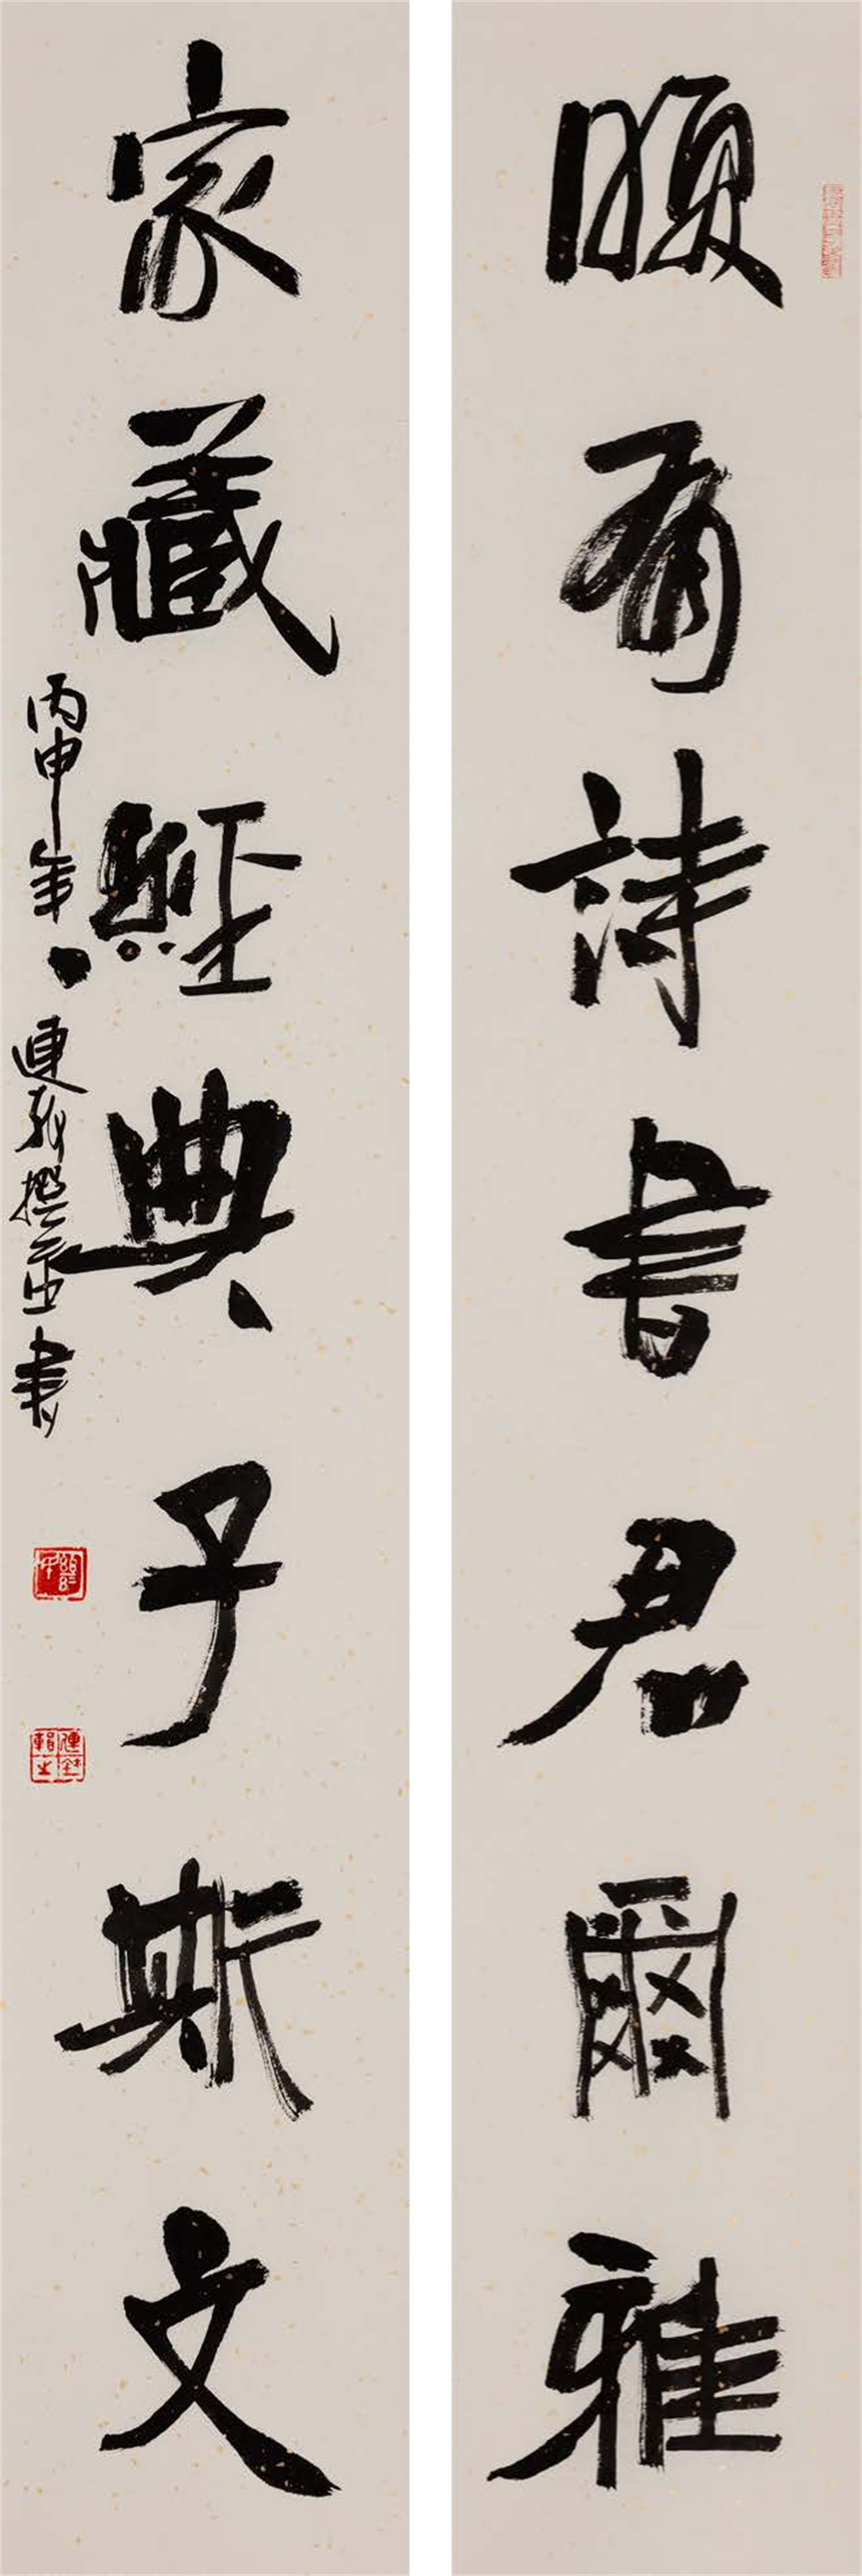 頗有詩書君爾雅
家藏經典子斯文
丙申年 連義撰並書